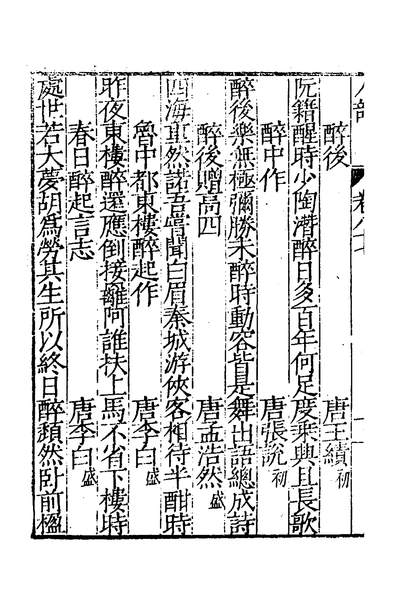 醉後　唐王績初
阮籍醒時少陶潛醉日多百年何足度乘興且長歌
醉中作　唐張說初
醉後樂無極彌勝未醉時動容皆是舞出語總成詩
醉後贈高四　唐孟浩然盛
四海其然諾吾嘗聞白眉秦城游俠客相待半酣時
魯中都東樓醉起作　唐李白盛
昨夜東樓醉還應倒接離阿誰扶上馬不省下樓時
春日醉起言志　唐李白盛
處世若大夢胡爲勞其生所以終日醉頹然臥前楹